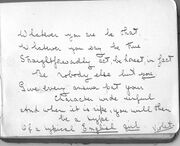 Whatever you are be that
Whatever you say be true
Straightforwardly act be honest in fact
Be nobody else but you
Give every answer but your
character wide
And when it is ripe you will then
be a type
Of a typical English girl